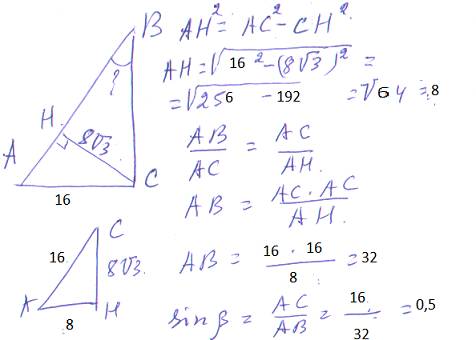 B
?
H
8√3
A
C
16
AH² = AC² - CH²
AH = √16² - (8√3)² =
= √256 - 192 = √64 = 8
AB/AC = AC/AH.
AB = AC·AC/AH.
C
16
8√3.
A
H
8
AB = 16 · 16/8 = 32
sin β = AC/AB = 16/32 = 0,5